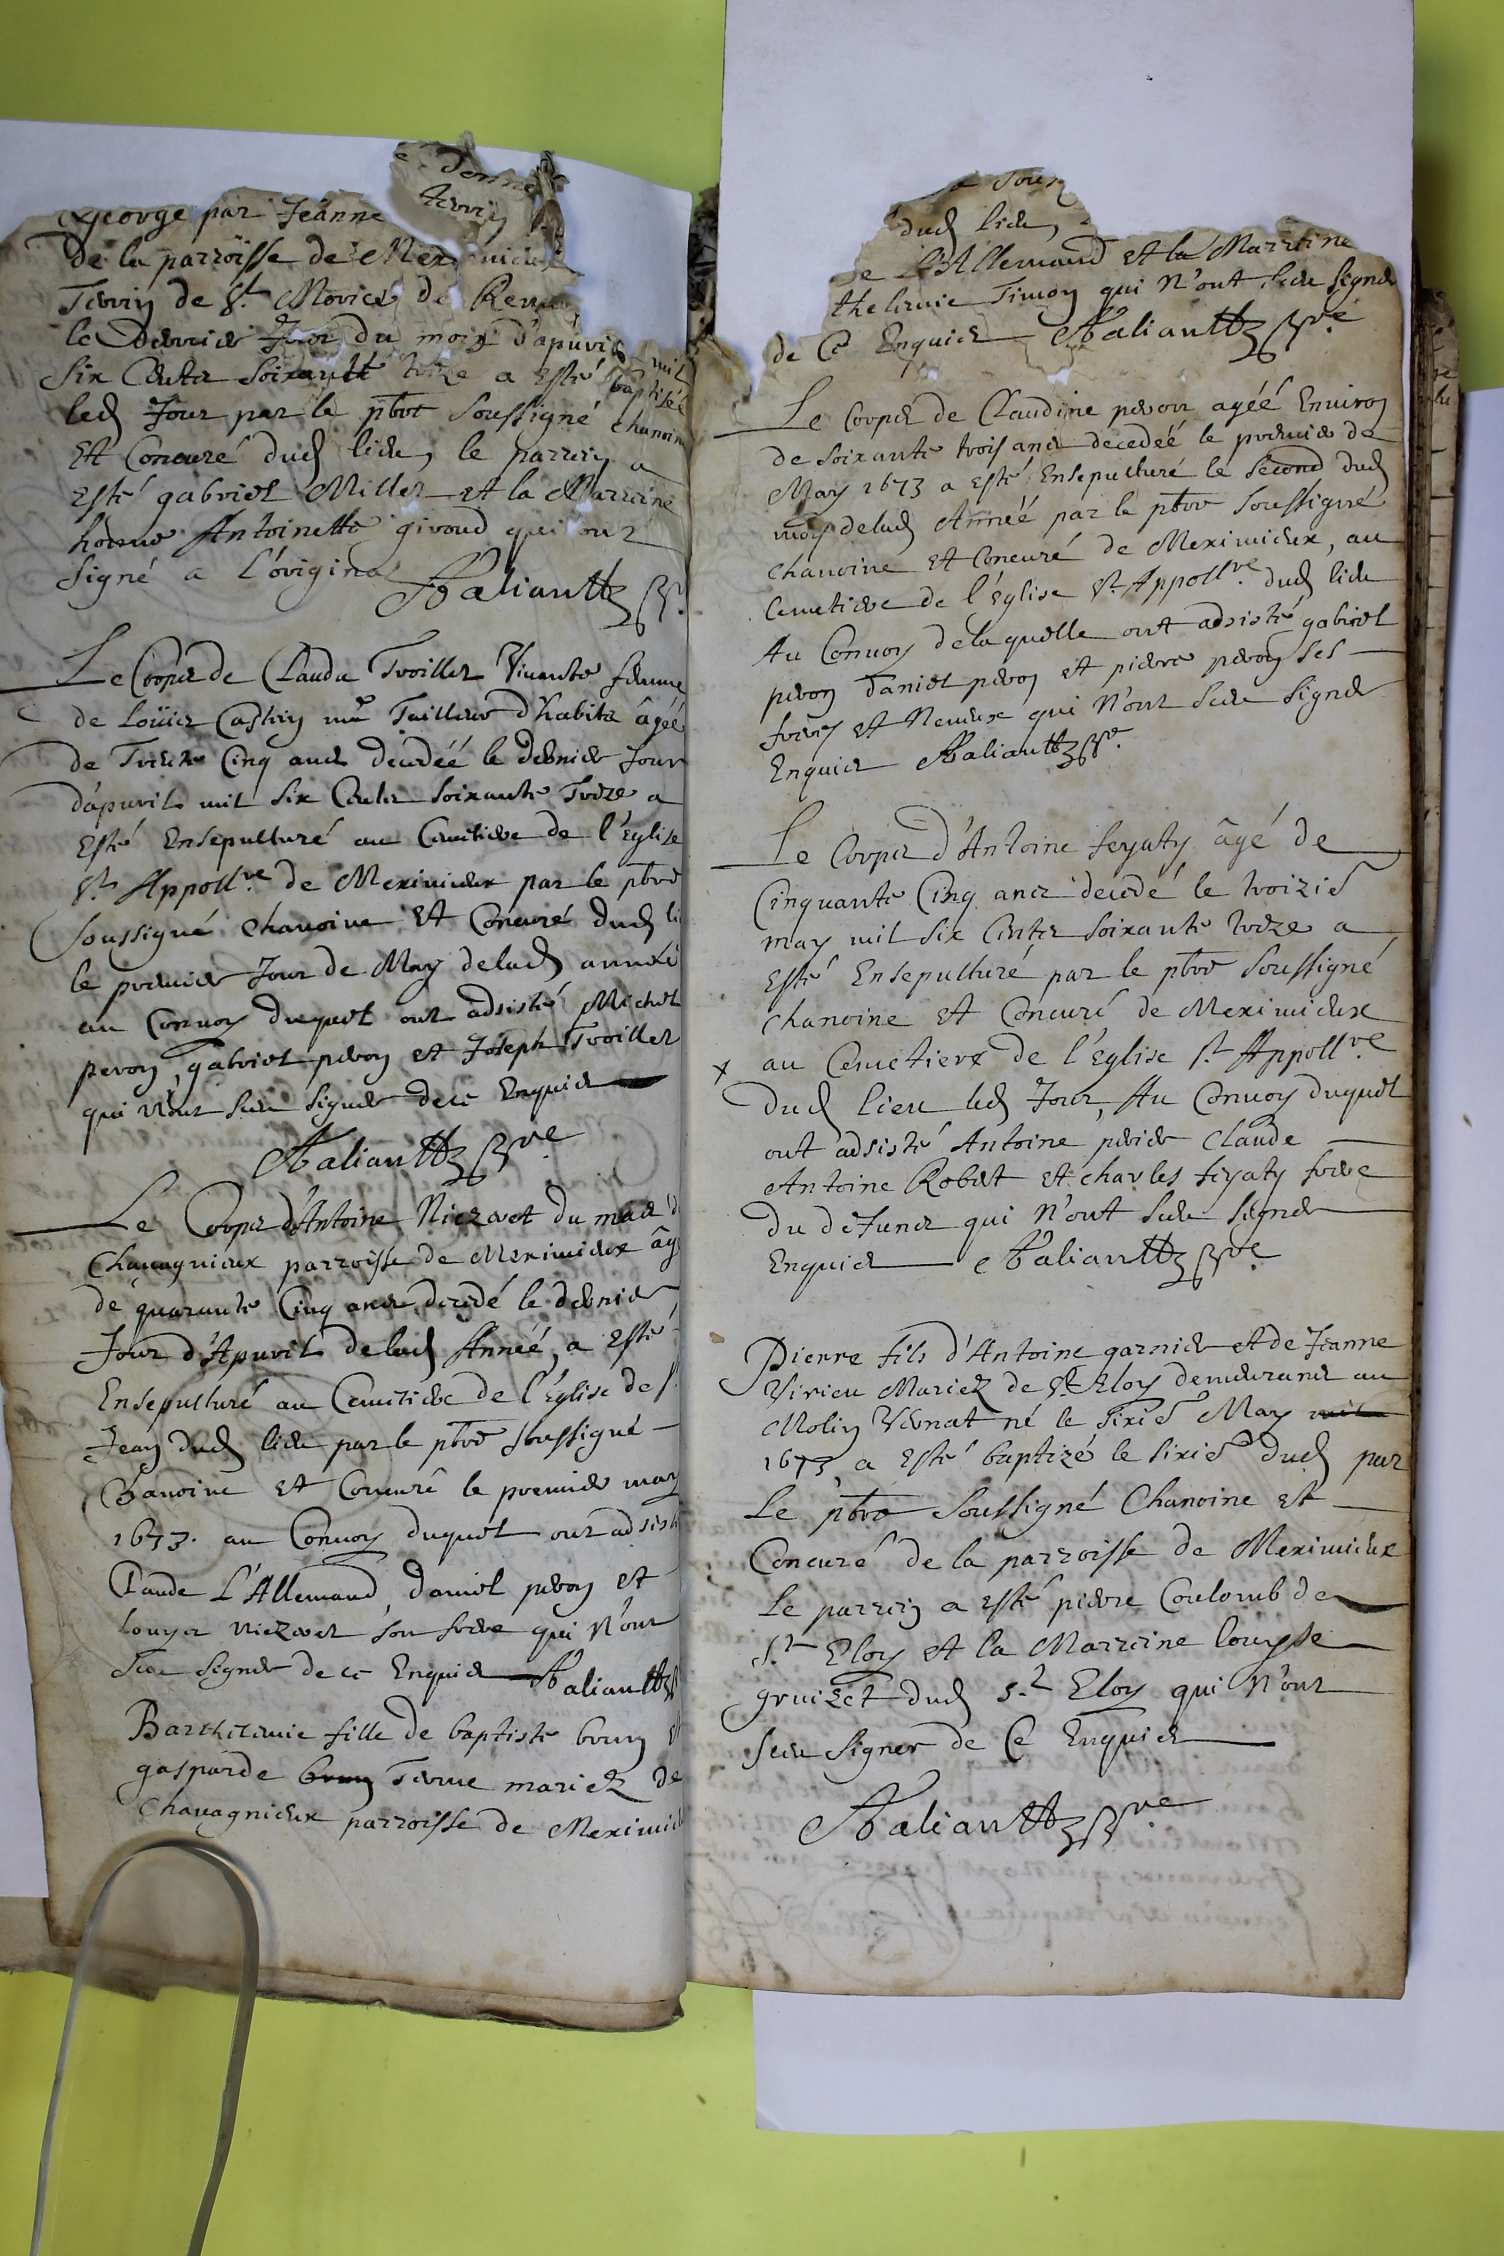 donne
Terrin
George par Jeanne
de la parroisse de Mex mieux
Terrin de St. Morice de Rem
le dernier Jour du mois d'apuril mil
Six Cents soixante treze a esté baptisée
led Jour par le pbre soussigné chanoine
Et Concuré dud lieu, le parrein a
esté gabriel Millet et la Marreine
hoñe Antoinette giroud qui ont
signé a l'original
Le Corps de Clauda Troillet Vivante femme
de Loüis Castin me Tailleur d'habits âgéé
de Trente Cinq ans décédéé le dernier Jour
d'apuril mil six Cents soixante Treze a
esté Ensepulturé au Cemetiere de l'Eglise
St. Appollre de Meximieux par le pbre
soussigné chanoine Et Concuré dud li
le premier Jour de May delad année
au Convoy duquel ont adsisté Michel
peron, gabriel peron et Joseph Troillet
qui n'ont sceu signer de ce Enquis
Le Corps d'Antoine Niezeret du mas d
Chauagnieux parroisse de Meximieux âg
de quarante Cinq ans, decedé le dernier
Jour d'Apuril delad Année, a esté
Ensepulturé au Cemetiere de l'Église de s.
Jean dud lieu par le pbre soussigné
Chanoine Et Concuré le premier may
1673. au Convoy duquel ont adsist
Claude L'Allemand, daniel peron et
Louys Niezeret son frere qui N'ont
sceu signer de ce Enquis
Barthelemie fille de baptiste brun et
gasparde brun Terme mariez de
Chauagnieux parroisse de Meximieu
dud lieu,
de L'Allemand et la Marreine
thelemie Timon qui N'ont sceu signer
de Ce Enquis
Le Corps de Claudine peron agéé Environ
de soixante trois ans decedéé le premier de
May 1673 a esté Ensepulturé le second dud
mois delad Annéé par le pbre soussigné
chanoine et Concuré de Meximieux, au
Cemetiere de l'Eglise St. Appollre dud lieu
Au Convoy delaquelle ont adsisté gabriel
peron daniel peron et pierre peron ses
freres et Neveux qui N'ont sceu signer
Enquis
Le Corps d'Antoine feyaty âgé de
Cinquante Cinq ans decedé le troizie
may mil six Cents soixante treze a
esté Ensepulturé par le pbre soussigné
chanoine Et Concuré de Meximieux
x au Cemetiere de l'Eglise St Appollre
dud lieu led Jour, Au Convoy duquel
ont adsisté Antoine perier Claude
Antoine Robert et charles feyaty frere
du defunct qui N'ont sceu signer
Enquis
Pierre fils d'Antoine garnier et de Jeanne
Virieu Mariez de St Eloy demeurans au
Molin Vernat né le sixie May mil
1673, a esté baptizé le sixie dud par
Le pbre soussigné Chanoine et
Concuré de la parroisse de Meximieux
Le parrein a esté pierre Coulomb de
St Eloy et la Marreine louysse
gruizet dud St Eloy qui N'ont
sceu signer de Ce Enquis